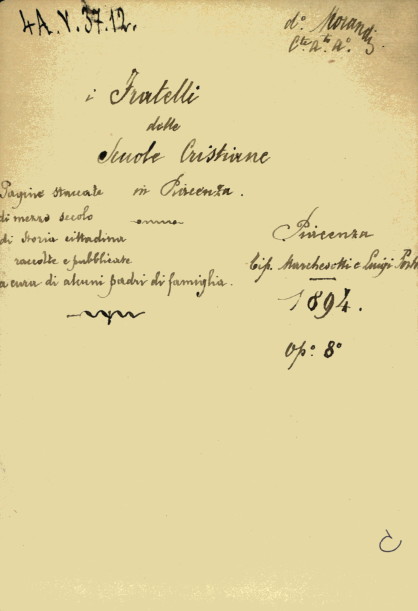 4A.V.37.12.
d.º Morandi
C.te a.te a.º
i Fratelli
delle
Scuole Cristiane
in Piacenza.
Pagine staccate
di mezzo secolo
di storia cittadina
raccolte e pubblicate
a cura di alcuni padri di famiglia.
Piacenza
Tip. Marchesotti e Luigi Porta
1894.
op.º 8º
C